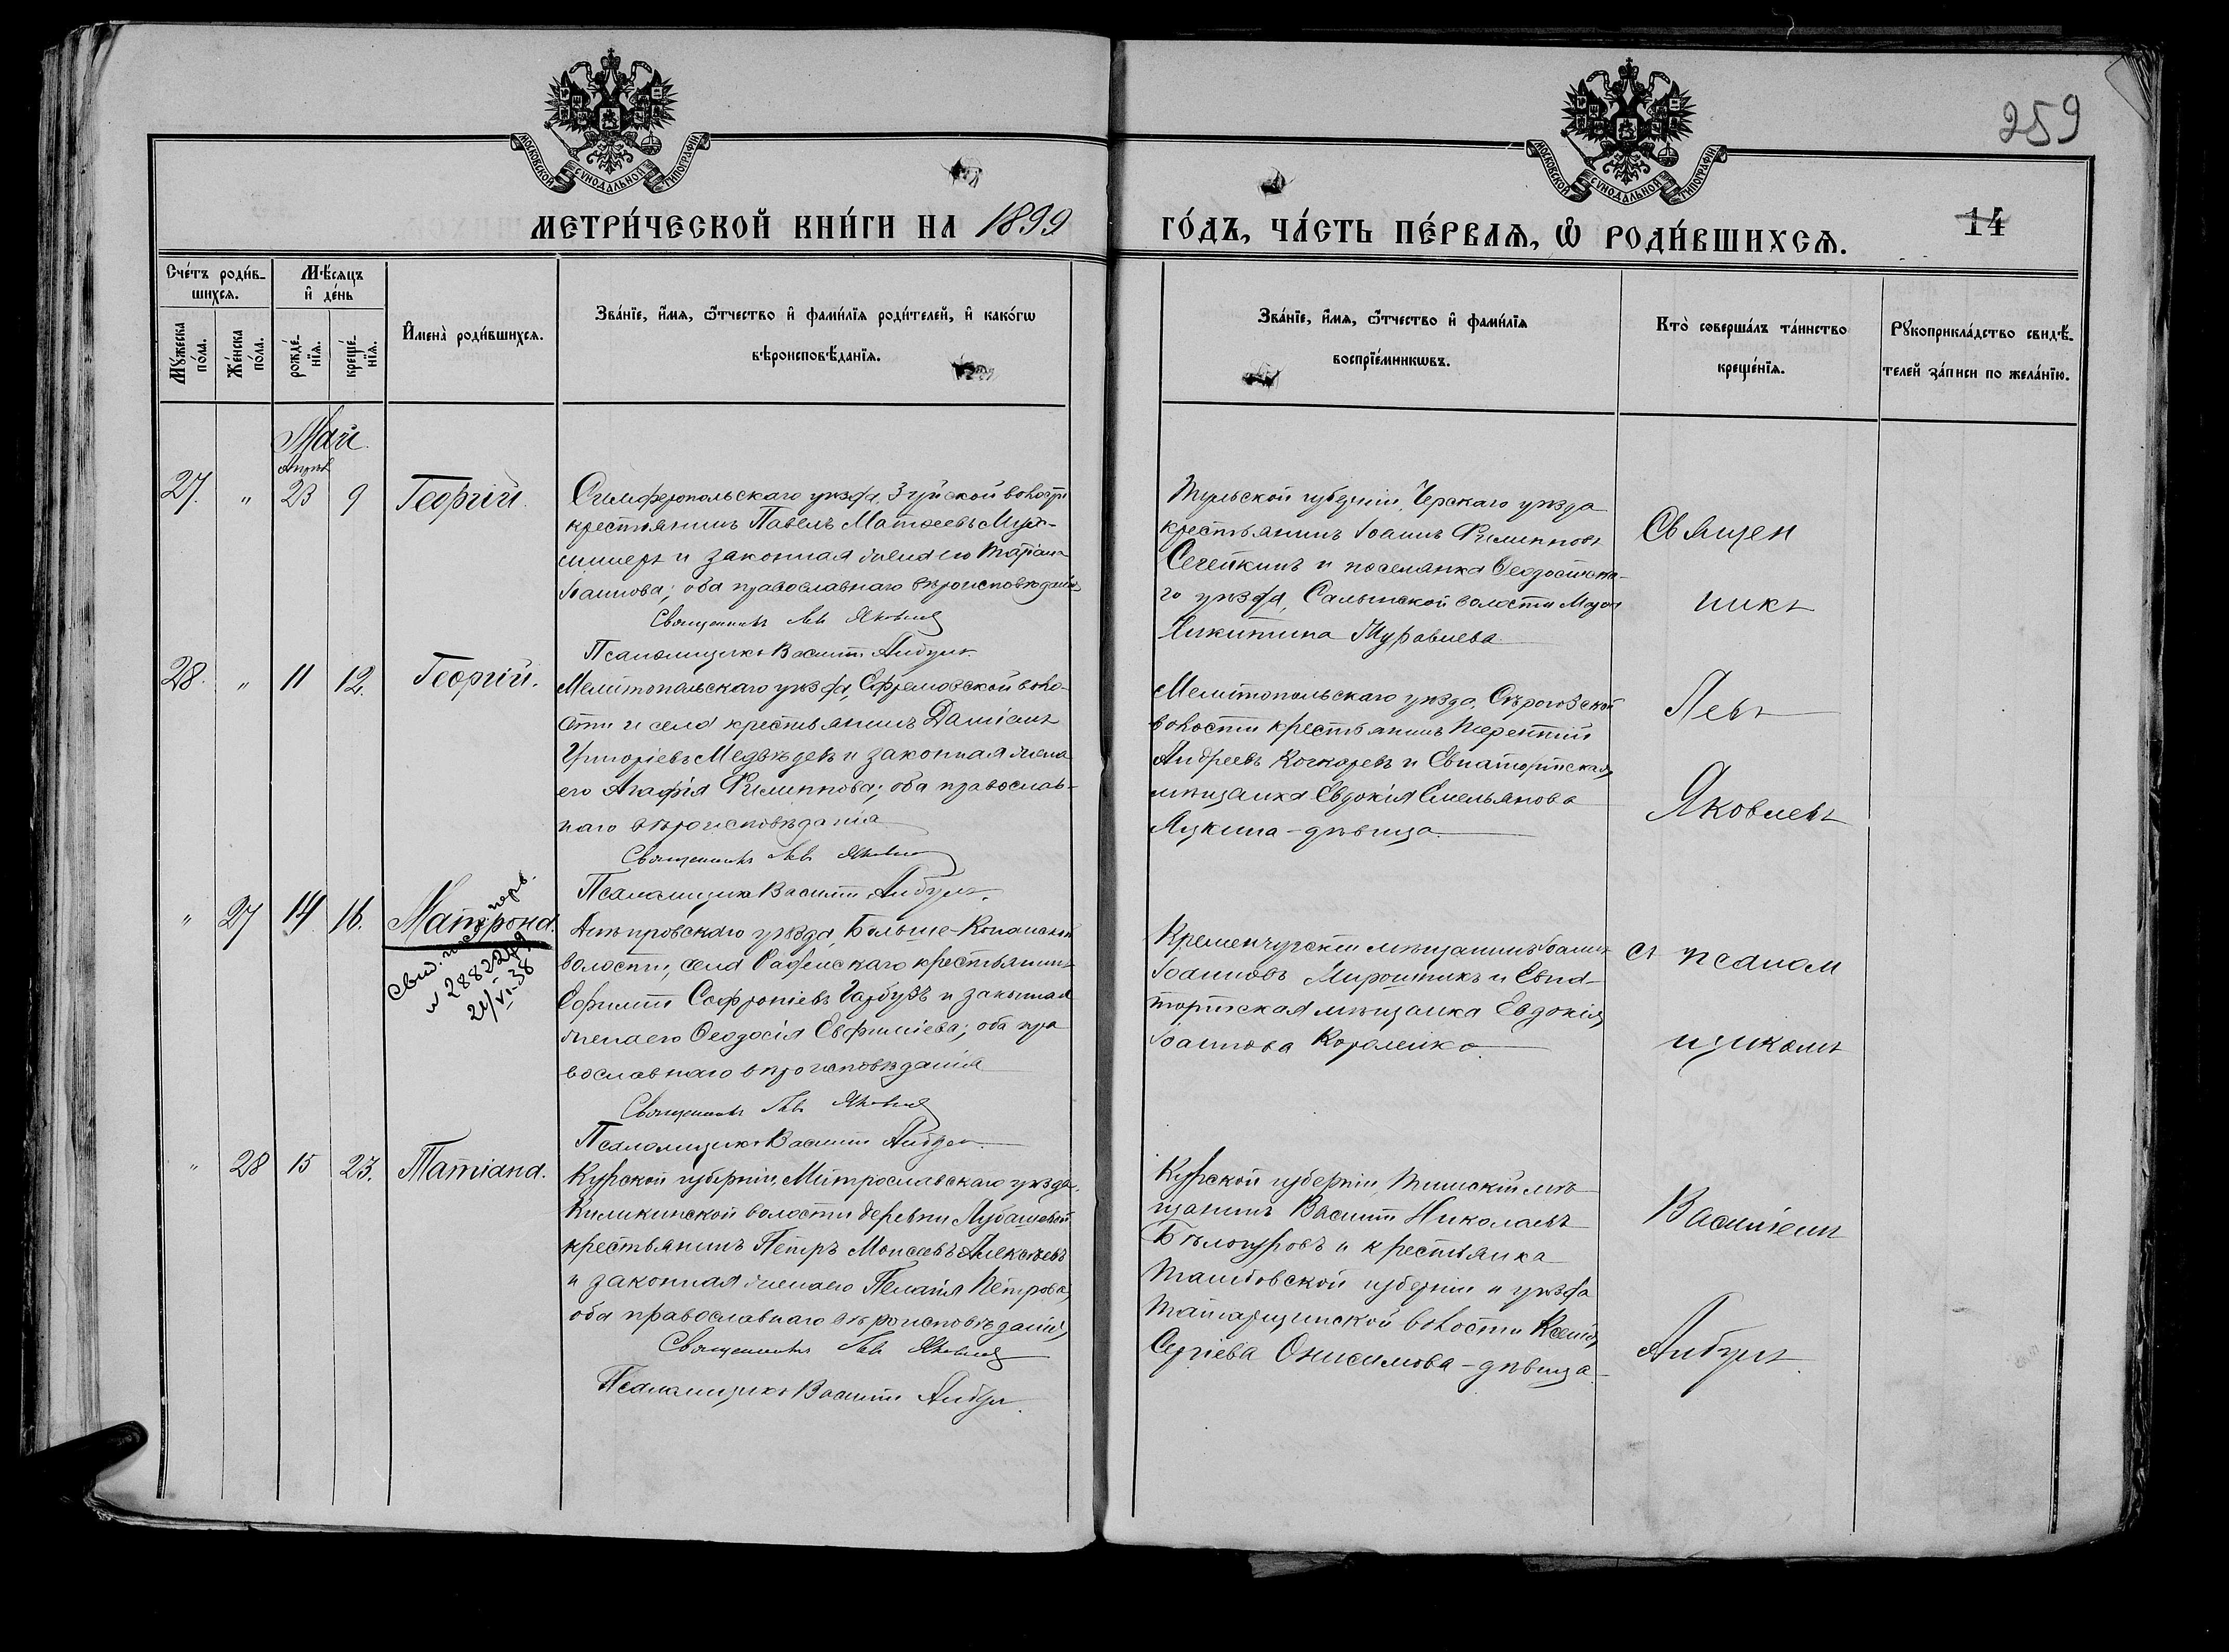 259
МОСКОВСКОЙ СУНОДАЛЬНОЙ ТИПОГРАФІИ
МОСКОВСКОЙ СУНОДАЛЬНОЙ ТИПОГРАФІИ
МЕТРИ́ЧЕСКОЙ КНИ́ГИ НА 1899
ГО́ДЪ, ЧА́СТЬ ПЕ́РВАѦ, Ѽ РОДИ́ВШИХСѦ.
14
Сче́тъ роди́в-
шихсѧ.
Мѣ́сяцъ
и҆ де́нь
Мꙋ́жеска
по́ла.
Же́нска
по́ла.
рожде́-
нїѧ.
креще́-
нїѧ.
И҆мена̀ роди́вшихсѧ.
Зва́нїе, и҆́мѧ, ѻ҆́тчество и҆ фами́лїѧ роди́телей, и҆ како́гѡ
вѣроисповѣ́данїѧ.
Зва́нїе, и҆́мѧ, ѻ҆́тчество и҆ фами́лїѧ
воспрїе́мникѡвъ.
Кто̀ соверша́лъ та́инство
креще́нїѧ.
Рꙋкоприкла́дство свидѣ́-
телей за́писи по жела́нїю.
Май
апрѣл
27. " 23 9 Георгій.
Симферопольскаго уѣзда, Зуйской волости
крестьянинъ Павелъ Матѳеевъ
и законная жена его Татіана
Іоаннова; оба православнаго вѣроисповѣданія
Священникъ Левъ Яковлевъ
Псаломщикъ Василій Анбулъ.
Тульской губерніи, Чернскаго уѣзда
крестьянинъ Іоаннъ Филипповъ
Сечейкинъ и поселянка Ѳеодосійска-
го уѣзда, Салынской волости
Никитина Журавлева
28. " 11 12. Георгій.
Мелитопольскаго уѣзда, Ефремовской воло-
сти и села крестьянинъ Даміанъ
Григоріевъ Медвѣдевъ и законная жена
его Агафія Филиппова; оба православ-
наго вѣроисповѣданія
Священникъ Левъ Яковлевъ
Псаломщикъ Василій Анбулъ.
Мелитопольскаго уѣзда, Сѣрогозской
волости крестьянинъ Терентій
Андреевъ Кочкаревъ и Евпаторійская
мѣщанка Евдокія Емельянова
Яцкина - дѣвица.
" 27 14 16. Матрона.
Свид.
N 288224
21/VI-38
Днѣпровскаго уѣзда, Больше-Копанской
волости, села Раденскаго крестьянинъ
Ефимій Софроніевъ Гарбузъ и законная
жена его Ѳеодосія Евфиміева; оба пра
вославнаго вѣроисповѣданія
Священникъ Левъ Яковлевъ
Псаломщикъ Василій Анбулъ.
Кременчугскій мѣщанинъ Іоаннъ
Іоанновъ Мирошникъ и Евпа-
торійская мѣщанка Евдокія
Іоаннова Короленко.
" 28 15 23. Татіана.
Курской губерніи, Митрославскаго уѣзда,
Киликинской волости деревни Лубашевой
крестьянинъ Петръ Моисеевъ Алексѣевъ
и законная жена его Пелагія Петрова,
оба православнаго вѣроисповѣданія
Священникъ Левъ Яковлевъ
Псаломщикъ Василій Анбулъ.
Курской губерніи, Тимскій мѣ-
щанинъ Василій Николаевъ
Бѣлогуровъ и крестьянка
Тамбовской губерніи и уѣзда
Татарщинской волости Ксенія
Сергіева Онисимова - дѣвица.
Священ
никъ
Левъ
Яковлевъ
съ псалом
щикомъ
Василіемъ
Анбулъ.